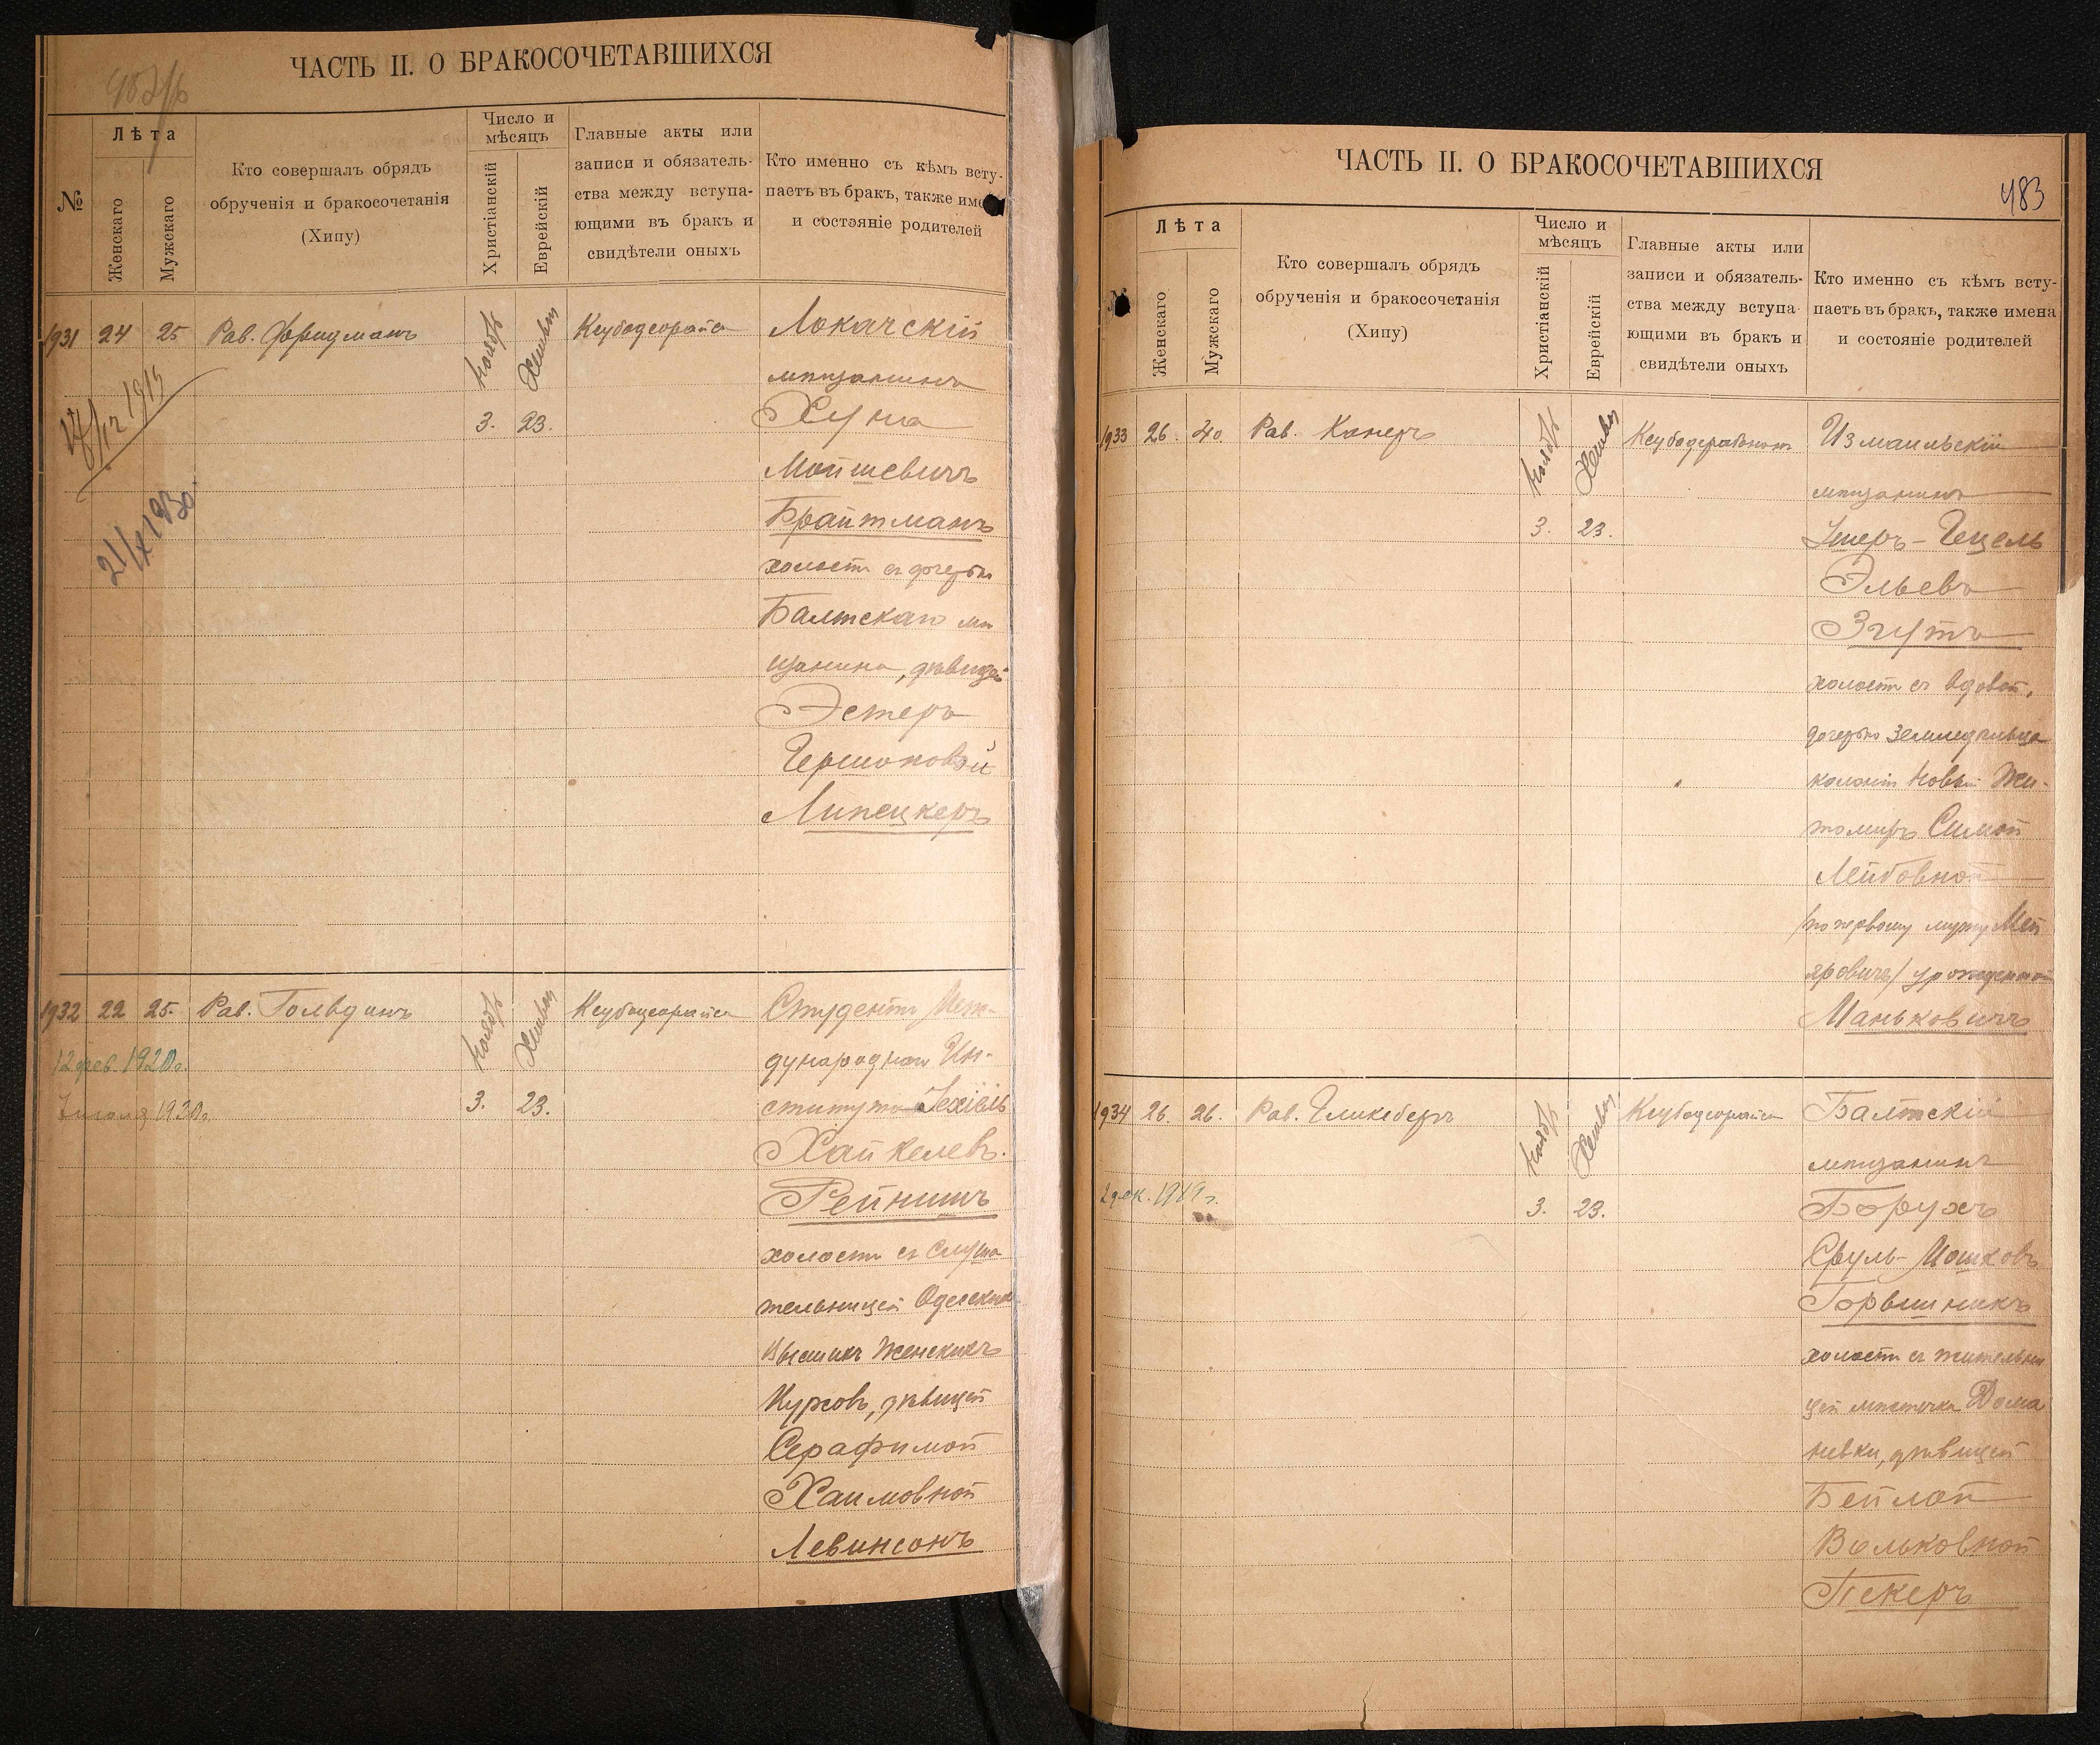 ЧАСТЬ II. О БРАКОСОЧЕТАВШИХСЯ
№
Лѣта
Женскаго
Мужскаго
Кто совершалъ обрядъ
обрученія и бракосочетанія
(Хипу)
Число и
мѣсяцъ
Христіанскій
Еврейскій
Главные акты или
записи и обязатель-
ства между вступа-
ющими въ бракъ и
свидѣтели оныхъ
Кто именно съ кѣмъ всту-
паетъ въ бракъ, также име
и состояніе родителей
1931 24 25 Рав. Фридманъ Ноябрь Хешванъ Локачскій
мѣщанинъ
3. 23. Хуна
Мойшевичъ
Брайтманъ
холостъ съ дочерью
Балтскаго мѣ
щанина, дѣвицей
Эстеръ
Гершоновой
Липецкеръ
17/12 1915
21/X 1930
1932 22 25. Рав. Гольдинъ Ноябрь Хешванъ Студентъ Меж-
дународнаго Ин-
3. 23. ститута Іехіель
Хайкелевъ.
Рейнишъ
холостъ съ слуша
тельницей Одесскихъ
Высшихъ Женскихъ
Курсовъ, дѣвицей
Серафимой
Хаимовной
Левинсонъ
12 фев. 1920 г.
ЧАСТЬ II. О БРАКОСОЧЕТАВШИХСЯ
483
Лѣта
Женскаго
Мужскаго
Кто совершалъ обрядъ
обрученія и бракосочетанія
(Хипу)
Число и
мѣсяцъ
Христіанскій
Еврейскій
Главные акты или
записи и обязатель-
ства между вступа-
ющими въ бракъ и
свидѣтели оныхъ
Кто именно съ кѣмъ всту-
паетъ въ бракъ, также имена
и состояніе родителей
1933 26. 40. Рав. Канеръ Ноябрь Хешванъ Измаильскій
мѣщанинъ
3. 23. Ушеръ-Гецель
Эльевъ
Згутъ
холостъ съ вдовой,
дочерью земледѣльца
колоніи Новый Жи-
томиръ Симой
Лейбовной
/по первому мужу Мей
еровичъ/ урожденной
Маньковичъ
1934 26. 26. Рав. Гликсбергъ Ноябрь Хешванъ Балтскій
мѣщанинъ
3. 23. Борухъ
Сруль-Мошковъ
Горвшникъ
холостъ съ жительни
цей мѣстечка Дома
невки, дѣвицей
Бейлой
Вольковной
Пекеръ
2 дек. 1919 г.